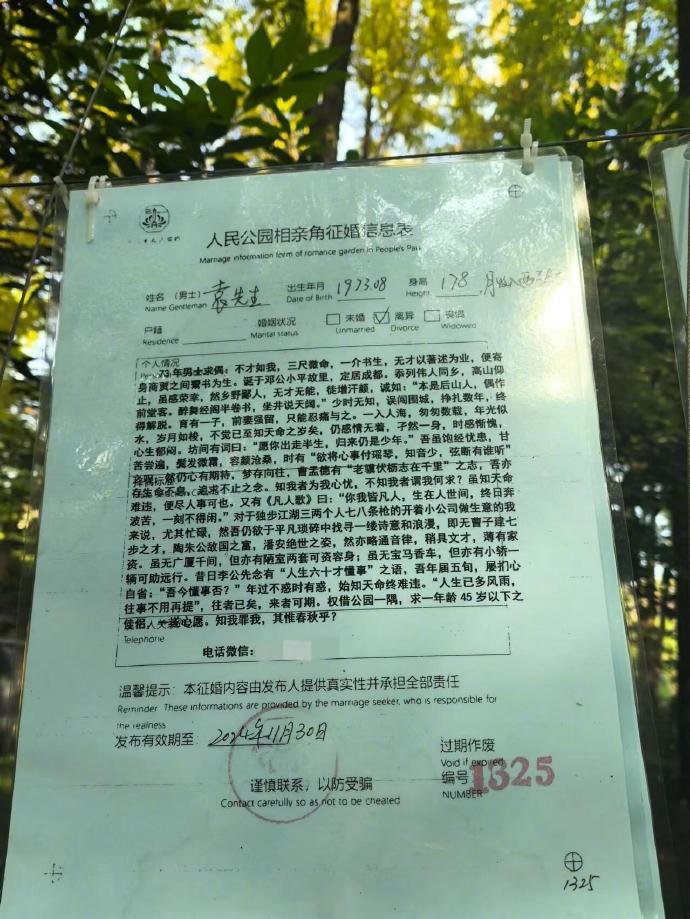 人民公园相亲角征婚信息表
Marriage information form of romance garden in People's Park
姓名 (男士) 袁先生 出生年月 1973.08 身高 178
Name Gentleman Date of Birth Height
户籍 婚姻状况 未婚 离异 丧偶
Residence Marital status Unmarried Divorce Widowed
个人情况
73年男士求偶：不才如我，三尺微命，一介书生，无才以著述为业，便寄
身商贾之间鬻书为生。诞于邓公小平故里，定居成都。忝列伟人同乡，高山仰
止，虽感荣幸，然乡野鄙人，无才无能，徒增汗颜，诚如：“本是后山人，偶作
前堂客。醉舞经阁半卷书，坐井说天阔。”少时无知，误闯围城，挣扎数年，终
得解脱。育有一子，前妻强留，只能忍痛与之。一入人海，匆匆数载，年光似
水，岁月如梭，不觉已至知天命之岁矣，仍感情无着，孑然一身，时感惭愧，
心生郁闷。坊间有词曰：“愿你出走半生，归来仍是少年。”吾虽饱经忧患，甘
苦尝遍，鬓发微霜，容颜沧桑，时有“欲将心事付瑶琴，知音少，弦断有谁听”
之叹，然仍心有期待，梦存向往，曹孟德有“老骥伏枥志在千里”之志，吾亦
存生命不息，追求不止之念。知我者为我心忧，不知我者谓我何求？虽知天命
难违，便尽人事可也。又有《凡人歌》曰：“你我皆凡人，生在人世间，终日奔
波苦，一刻不得闲。”对于独步江湖三两个人七八条枪的开着小公司做生意的我
来说，尤其忙碌，然吾仍欲于平凡琐碎中找寻一缕诗意和浪漫，即无曹子建七
步之才，陶朱公敌国之富，潘安绝世之姿，然亦略通音律，稍具文才，薄有家
资。虽无广厦千间，但亦有陋室两套可资容身；虽无宝马香车，但亦有小轿一
辆可助远行。昔日李公先念有“人生六十才懂事”之语，吾年届五旬，屡扪心
自省：“吾今懂事否？”年过不惑时有惑，始知天命终难违。“人生已多风雨，
往事不用再提”，往者已矣，来者可期。权借公园一隅，求一年龄45岁以下之
佳侣，一遂心愿。知我罪我，其惟春秋乎？
Telephone
电话微信：
温馨提示：本征婚内容由发布人提供真实性并承担全部责任
Reminder These informations are provided by the marriage seeker, who is responsible for
the realness
发布有效期至： 2024年11月30日
过期作废
Void if expired
编号 1325
NUMBER
谨慎联系，以防受骗
Contact carefully so as not to be cheated
1325